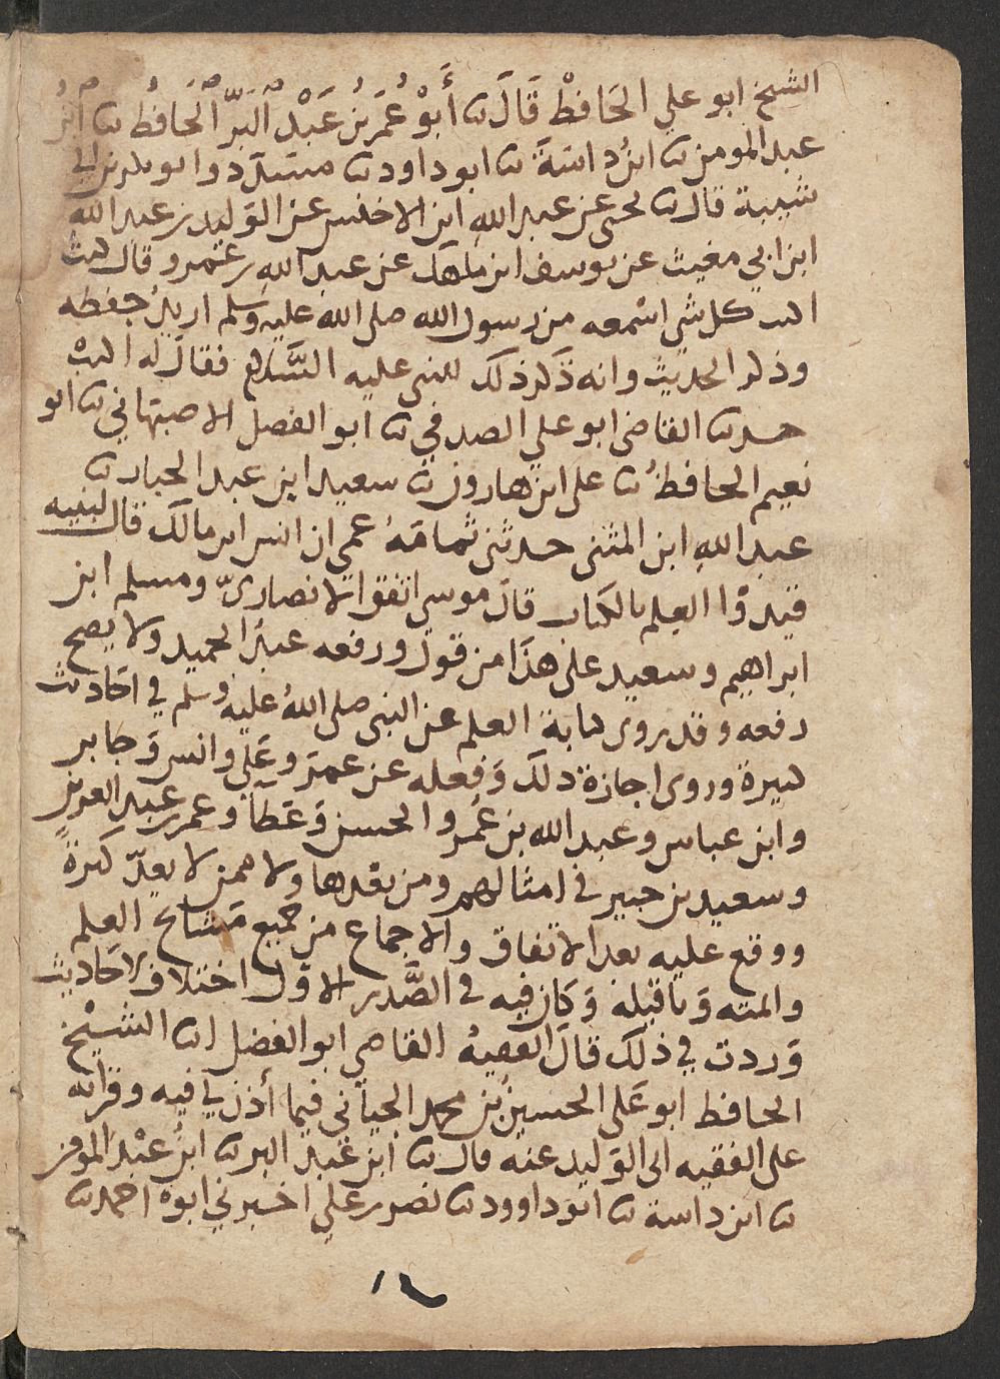 الشيخ ابو علي الحَافظْ قَالَ نا أَبُوْ عُمَر بنُ عَبْدِ البَرّ الْحَافظُ نا ابنُ
عبد المومن نا ابنُ داسَةَ نا ابو داود نا مسَدّد وابو بكر بن ابي
شيبة قال نا يحيى عن عبد اللهِ ابن الاخنس عن الوَليد بن عبد الله
ابن ابي مغيث عن يوسف ابن ماهك عن عبد اللهِ بن عَمرو قال كنت
اكتب كل شي اسْمعه من رسول الله صلى الله عليه وسلم اريدُ حفظه
وذكر الحديث وانه ذَكر ذلك للنبي عليه السَّلام فقالَ له اكتبْ
حدثنا القاضي ابو علي الصدفي نا ابو الفضل الاصبهاني نا ابو
نعيم الحافظُ نا علي ابن هارون نا سعيد ابن عبد الجبار نا
عبد اللهِ ابن المثنى حدثني ثمامَهُ عمي ان انس ابن مالك قال لبنيه
قيدوُا العِلم بالكتاب قالَ موسى اتفق الانصاريّ ومسلم ابن
ابراهيم وسعيد على هذَا من قول ورفعه عبدُ الحميد ولا يصح
رفعه وقد روى كتابة العلم عن النبي صلى اللهُ عليه وسلم في احَاديث
كثيرة وروى اجازة ذلك وَفعله عن عمرَ وعَلي وانس وَجابر
وابن عباس وعبد الله بن عَمْرو والحسن وَعَطآءٍ وعمر بن عبد العزيز
وسعيد بن جبير في امثالهم ومن بعْدها ولاء ممن لا يعدّ كثرةً
ووقع عليه بعد الاتفاق والاجماع من جميع مَشائخ العلم
وائمته وَناقليه وَكان فيه في الصَّدر الاوَّل اختلاف لاحَاديث
وَردت في ذلك قالَ الفقيهُ القاضي ابو الفضل انا الشيْخ
الحافظ ابو عَلي الحسينُ بن محمد الجياني فيما أذن لي فيه وقرأته
على الفقيه ابي الوَليد عنه قال نا ابن عَبد البر نا ابنُ عبْد المومن
نا ابن داسة نا ابوَ داوود نا نصر بن علي اخبرني ابوهْ احمد نا
١٤